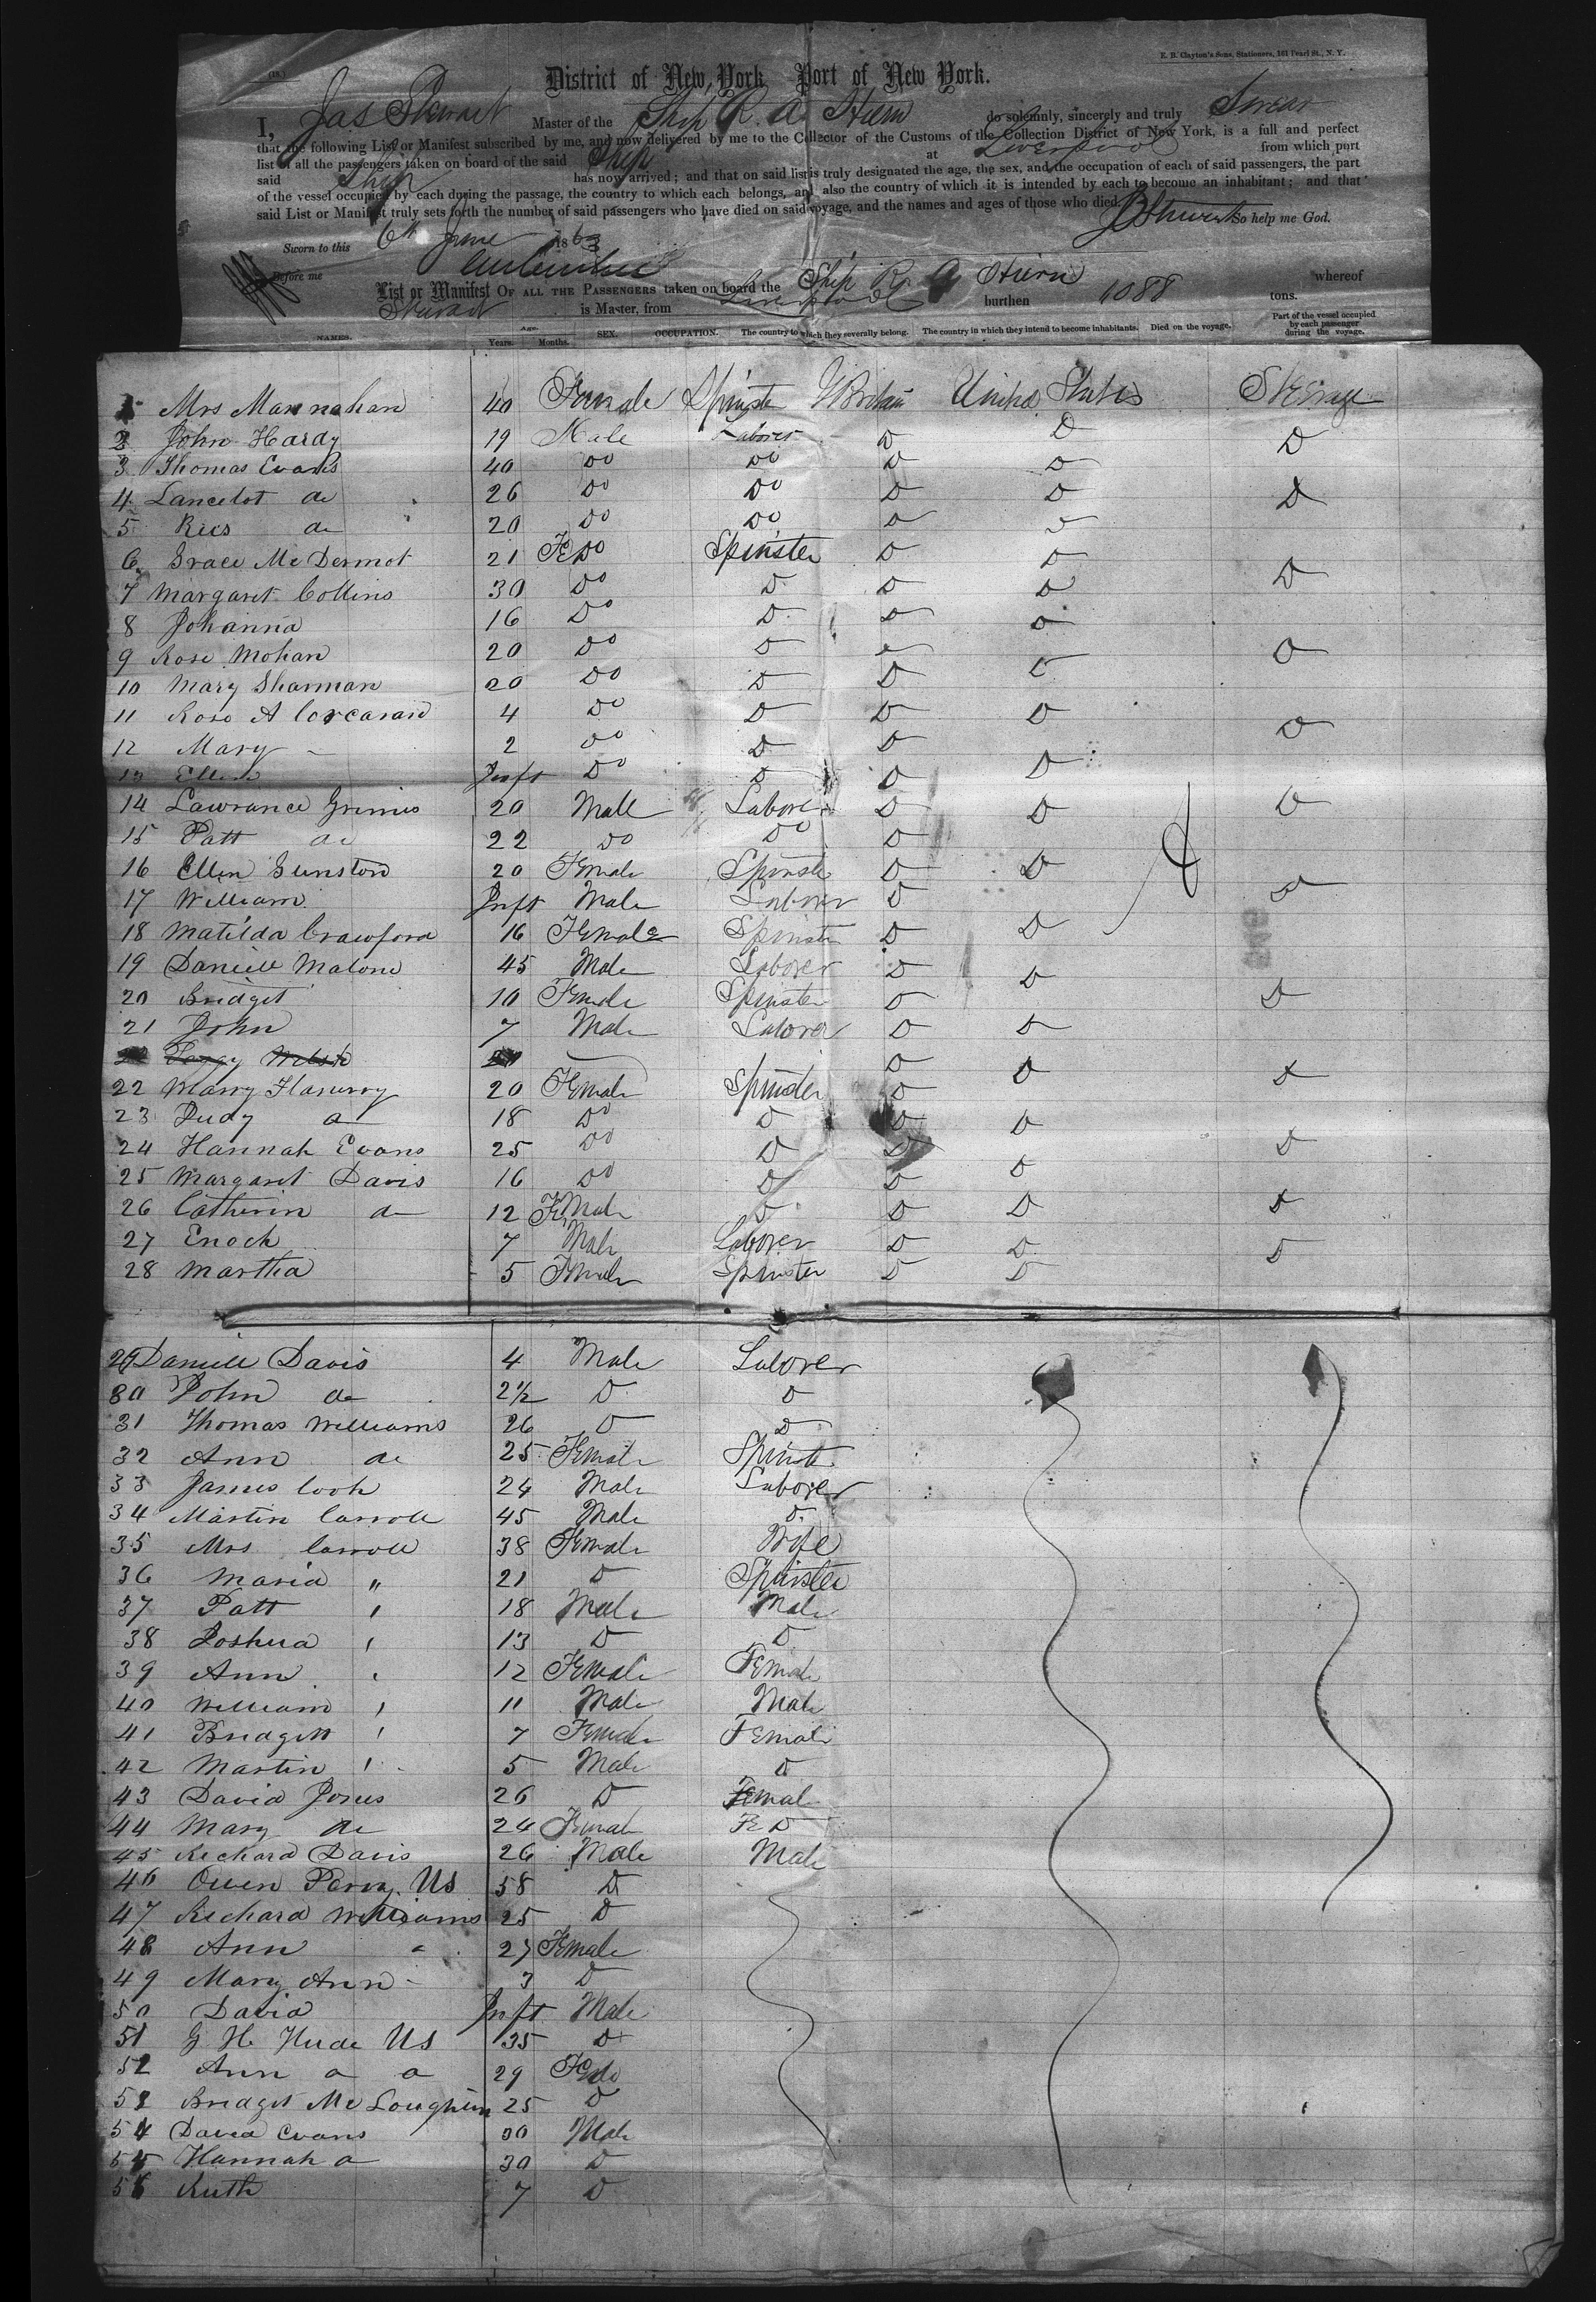 E. B. Clayton's Sons, Stationers, 161 Pearl St., N. Y.
District of New York Port of New York.
I, Jas Stewart Master of the Ship R. A. Hiern do solemnly, sincerely and truly Swear
that the following List or Manifest subscribed by me, and now delivered by me to the Collector of the Customs of the Collection District of New York, is a full and perfect
list of all the passengers taken on board of the said Ship at Liverpool from which port
said Ship has now arrived; and that on said list is truly designated the age, the sex, and the occupation of each of said passengers, the part
of the vessel occupied by each during the passage, the country to which each belongs, and also the country of which it is intended by each to become an inhabitant; and that
said List or Manifest truly sets forth the number of said passengers who have died on said voyage, and the names and ages of those who died.
JStewart So help me God.
Sworn to this 6th June 1863
Before me
List or Manifest OF ALL THE PASSENGERS taken on board the Ship R A Hiern whereof
Stewart is Master, from Liverpool burthen 1088 tons.
NAMES. Age. Years. Months. SEX. OCCUPATION. The country to which they severally belong. The country in which they intend to become inhabitants. Died on the voyage. Part of the vessel occupied by each passenger during the voyage.
1 Mrs Mannahan 40 Female Spinster GBritain United States Steerage
2 John Hardy 19 Male Laborer D D D
3 Thomas Evans 40 Do Do D D
4 Lancelot do 26 Do Do D D D
5 Rees do 20 Do Do D D
6 Grace McDermot 21 FeDo Spinster D D
7 Margaret Collins 30 Do D D D D
8 Johanna 16 Do D D D
9 Rose Mohan 20 Do D D D D
10 Mary Shannan 20 Do D D
11 Rose A Corcaran 4 Do D D D
12 Mary 2 Do D D D
13 Ellen Inft Do D D D
14 Lawrance Grimes 20 Male Laborer D D D
15 Patt do 22 Do Do D
16 Ellen Gunston 20 Female Spinster D D
17 William Inft Male Laborer D D
18 Matilda Crawford 16 Female Spinster D D
19 Daniell Malone 45 Male Laborer D D
20 Bridget 10 Female Spinster D D
21 John 7 Male Laborer D D
D
22 Marry Flanurry 20 Female Spinster D D D
23 Judy do 18 Do D D D
24 Hannah Evans 25 Do D D D
25 Margaret Davis 16 Do D D D
26 Catherin do 12 Female D D D D
27 Enoch 7 Male Laborer D D D
28 Martha 5 Female Spinster D D
29 Daniell Davis 4 Male Laborer
30 John do 2½ D D
31 Thomas Williams 26 D D
32 Ann do 25 Female Spinst
33 James Cook 24 Male Laborer
34 Martin Carroll 45 Male D
35 Mrs Carroll 38 Female Wife
36 Maria " 21 D Spinster
37 Patt " 18 Male Male
38 Joshua " 13 D D
39 Ann " 12 Female Female
40 William " 11 Male Male
41 Bridgett " 7 Female Female
42 Martin " 5 Male D
43 David Jones 26 D Female
44 Mary do 24 Female Fe D
45 Richard Davis 26 Male Male
46 Owen Parry US 58 D
47 Richard Williams 25 D
48 Ann " 27 Female
49 Mary Ann 3 D
50 David Inft Male
51 G H Hude US 35 D
52 Ann 29 Fedo
53 Bridget McLoughlin 25 D
54 David Evans 30 Male
55 Hannah 30 D
56 Ruth 7 D